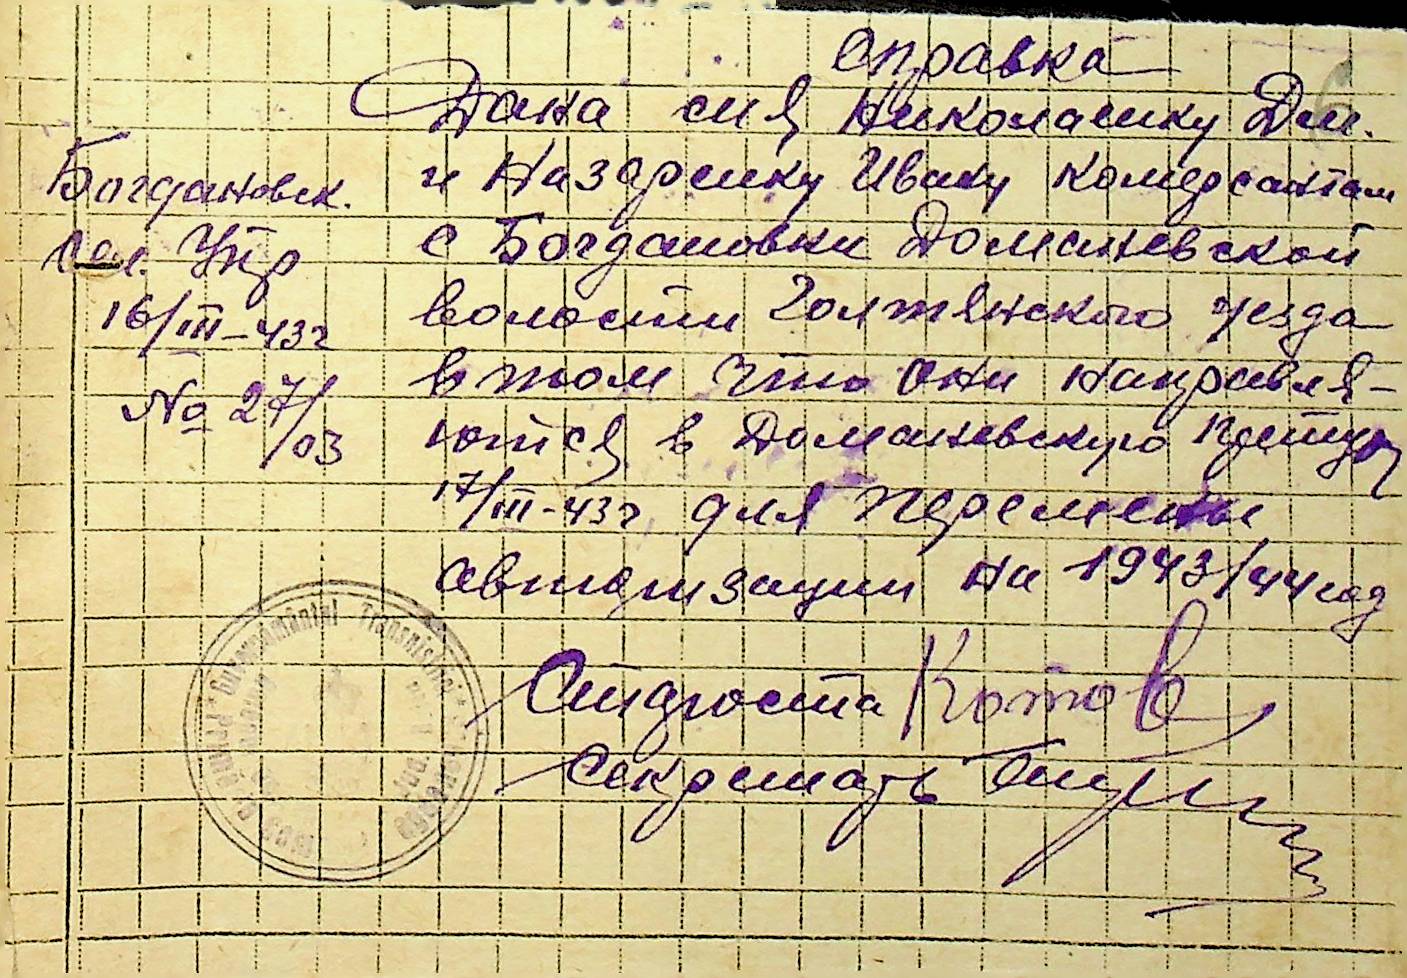 Справка
Дана сия Николаику Дм.
и Назаренку Ивану комерсантам
с Богдановки Доманевской
волости Голтянского уезда
в том что они направля-
ются в Доманевскую претуру
17/III-43г для перемены
авторизации на 1943/44 год
Староста Котов
Секретарь
Богдановск.
сел. Упр
16/III-43г
№ 27/03
6
Guvernamântul Transnistriei